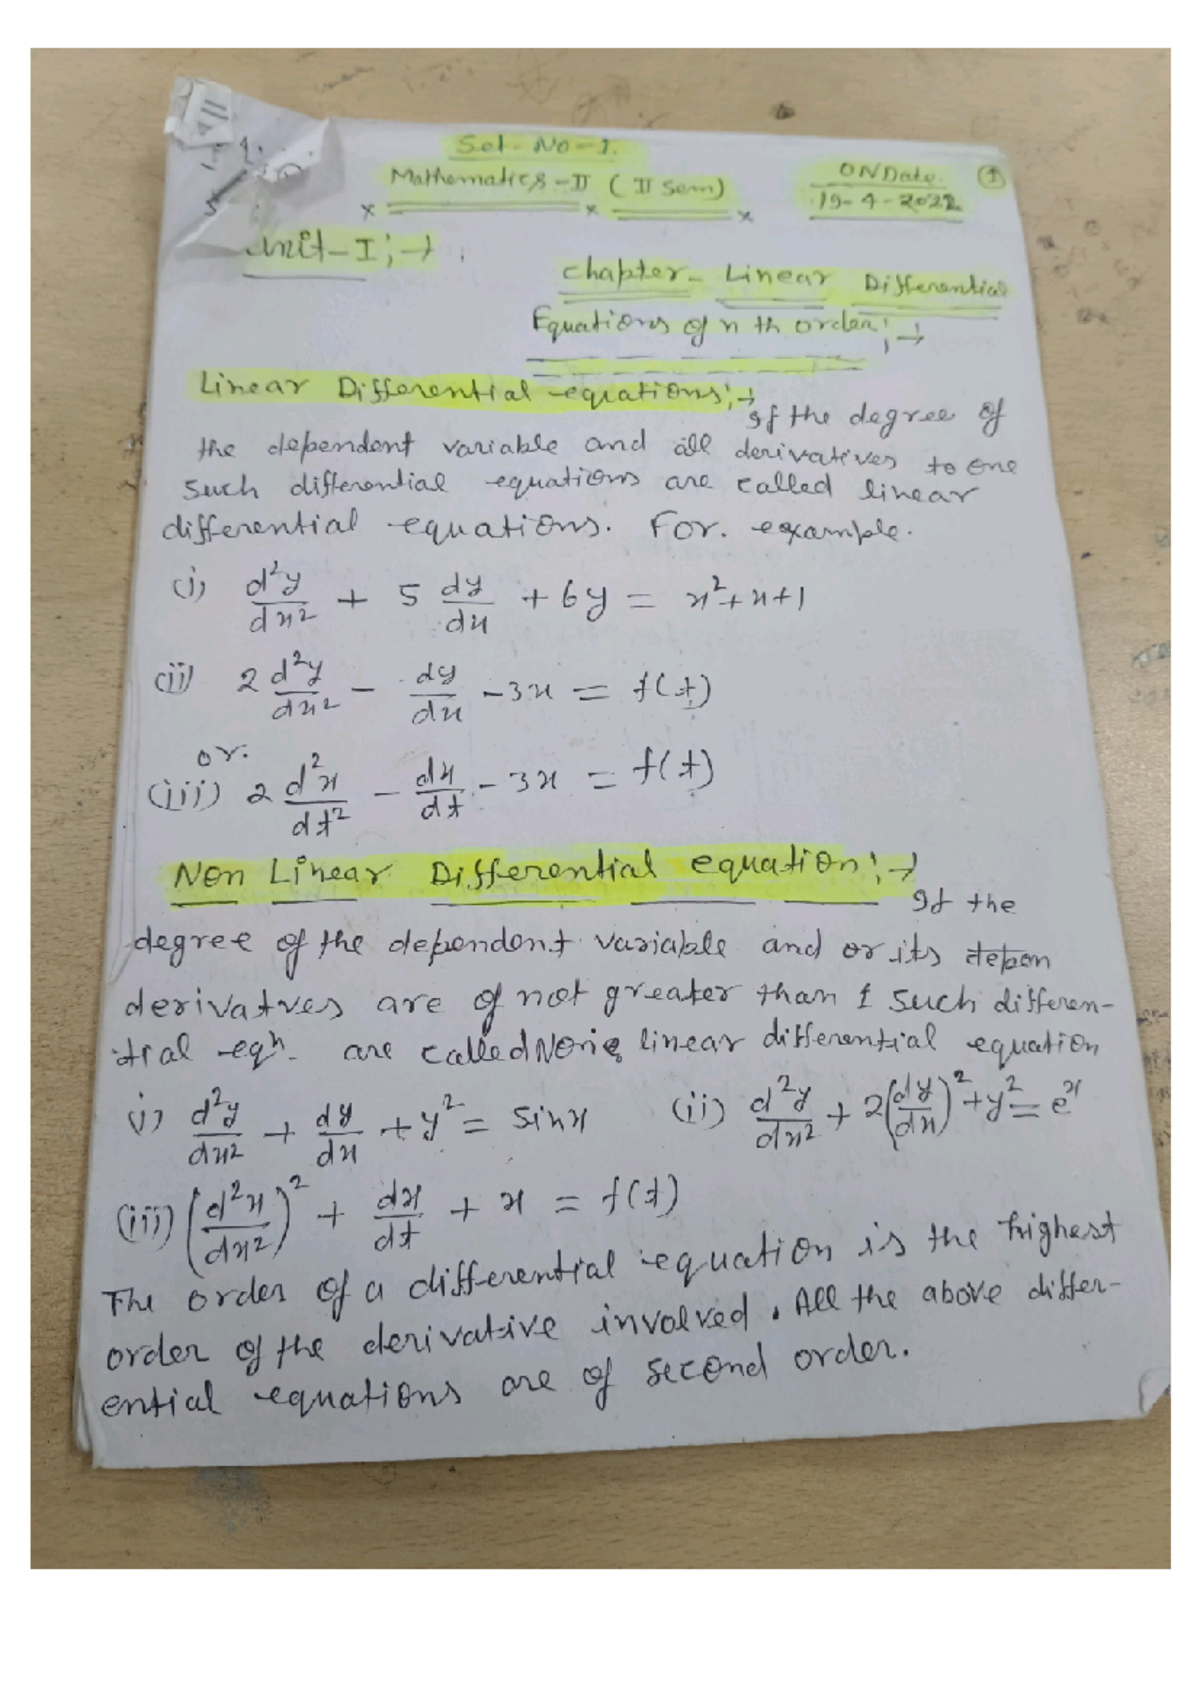 Set- No-1.
Mathematics-II ( II Sem)
ON Date. 1
19-4-2022
Unit-I ;→
Chapter- Linear Differential
Equations of n th order ;→
Linear Differential equations ;→
If the degree of
the dependent variable and all derivatives to one
such differential equations are called linear
differential equations. For. example.
(i) d²y/dx² + 5 dy/dx + 6y = x²+x+1
(ii) 2 d²y/dx² - dy/dx - 3x = f(t)
or.
(iii) 2 d²x/dt² - dx/dt - 3x = f(t)
Non Linear Differential equation ;→
If the
degree of the dependent variable and or its depen
derivatves are of not greater than 1 such differen-
tial eqn. are called Non linear differential equation
i) d²y/dx² + dy/dx + y² = sinx (ii) d²y/dx² + 2(dy/dx)² + y² = eˣ
(iii) (d²x/dx²)² + dx/dt + x = f(t)
The order of a differential equation is the highest
order of the derivative involved. All the above differ-
ential equations are of second order.